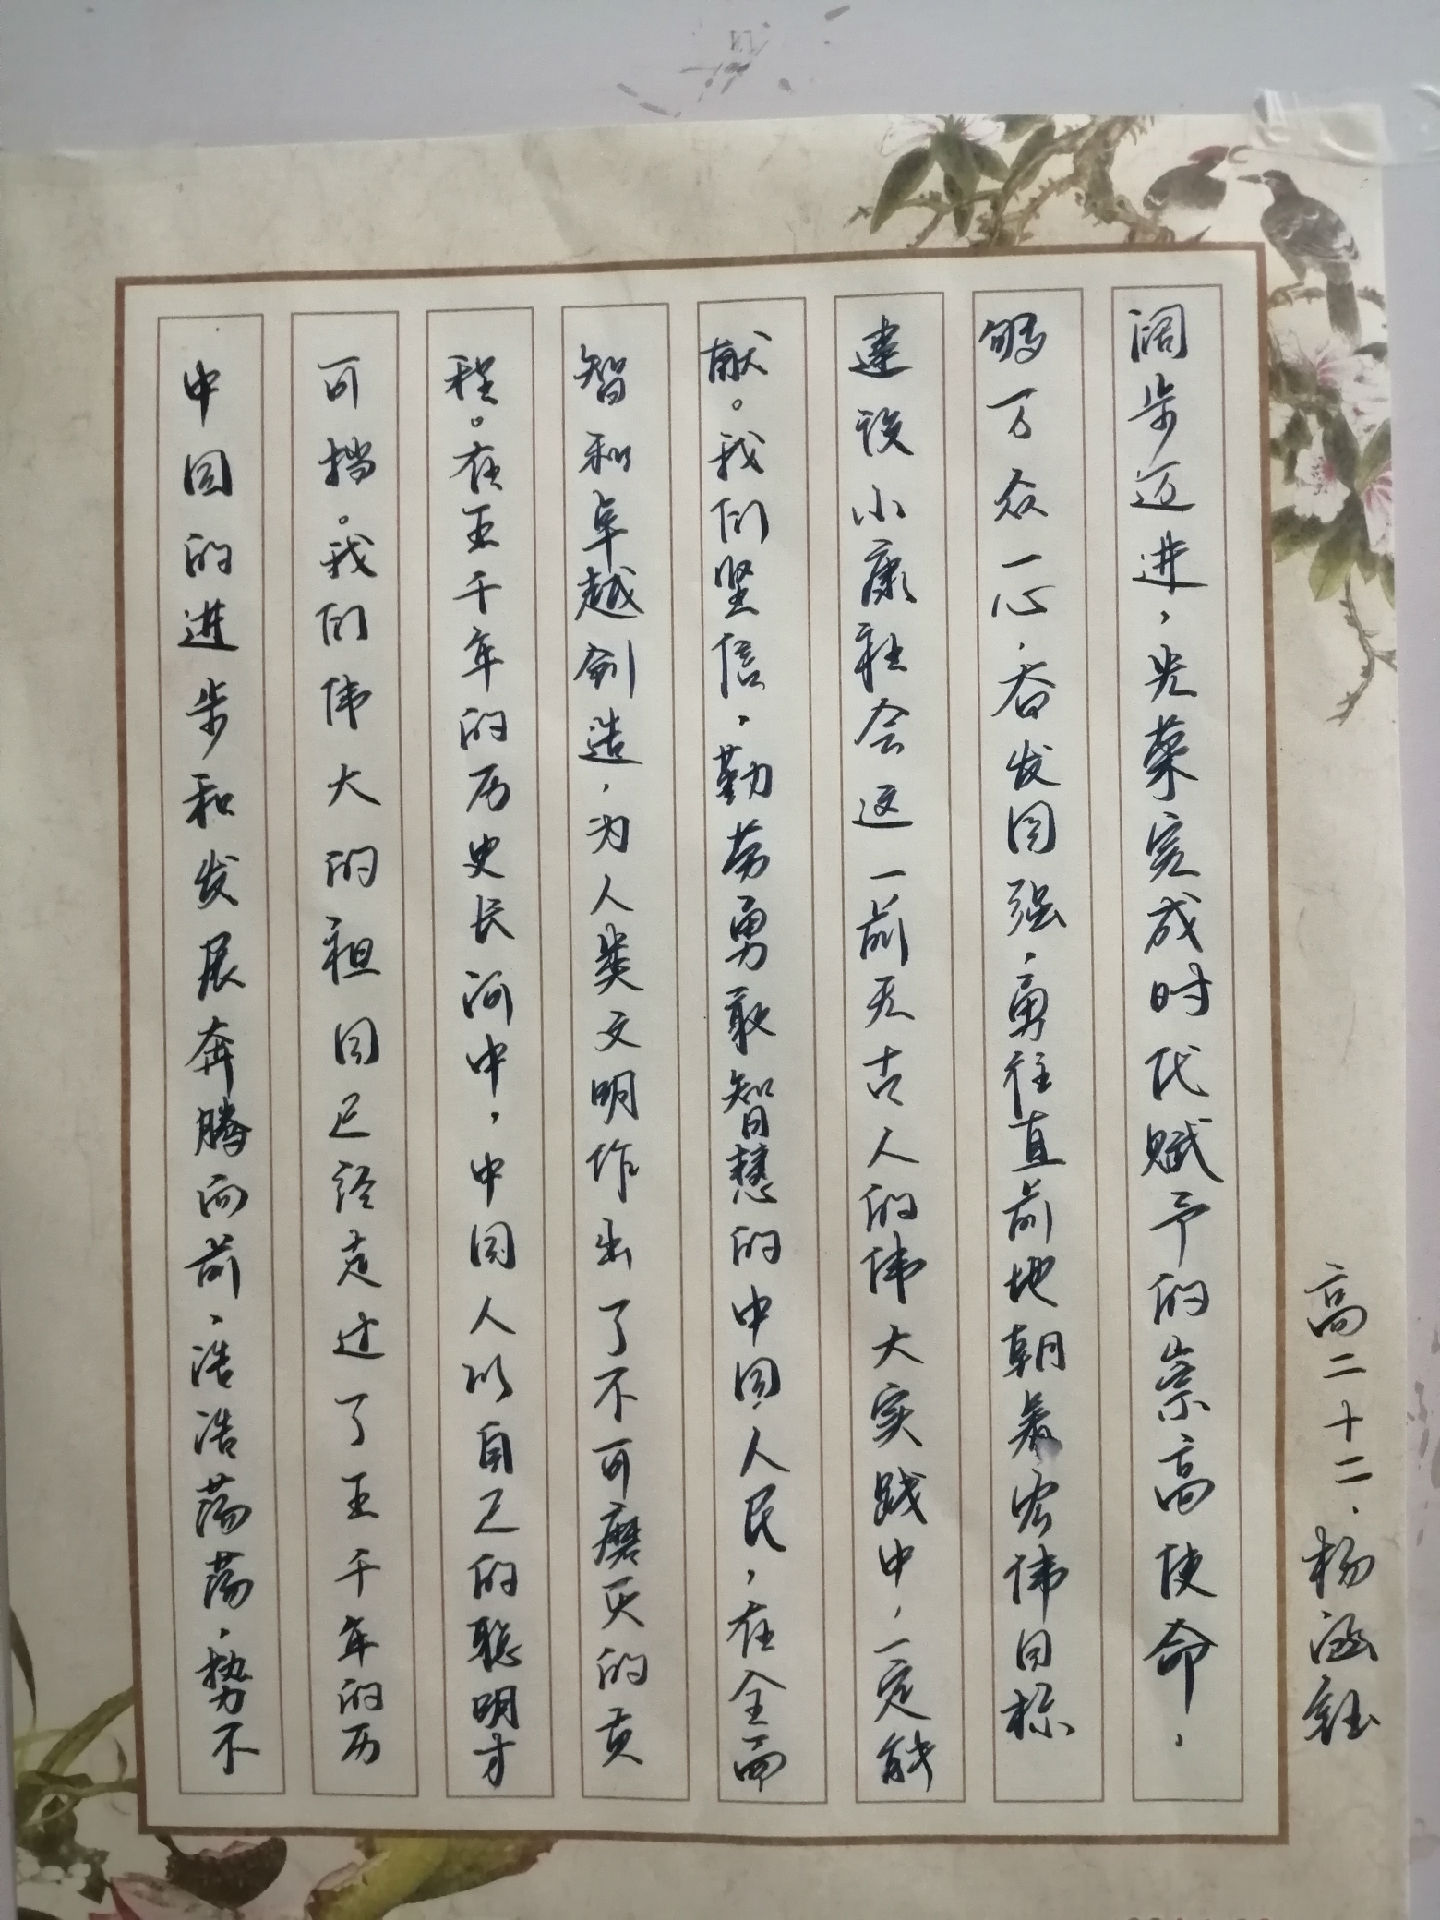 中国的进步和发展奔腾而前，浩浩荡荡，势不
可挡。我们伟大的祖国已经走过了五千年的历
程。在五千年的历史长河中，中国人以自己的聪明才
智和卓越创造，为人类文明作出了不可磨灭的贡
献。我们坚信，勤劳勇敢智慧的中国人民，在全面
建设小康社会这一前无古人的伟大实践中，一定能
够万众一心，奋发图强，勇往直前地朝着宏伟目标
阔步迈进，光荣完成时代赋予的崇高使命，
高二十二.杨涵钰